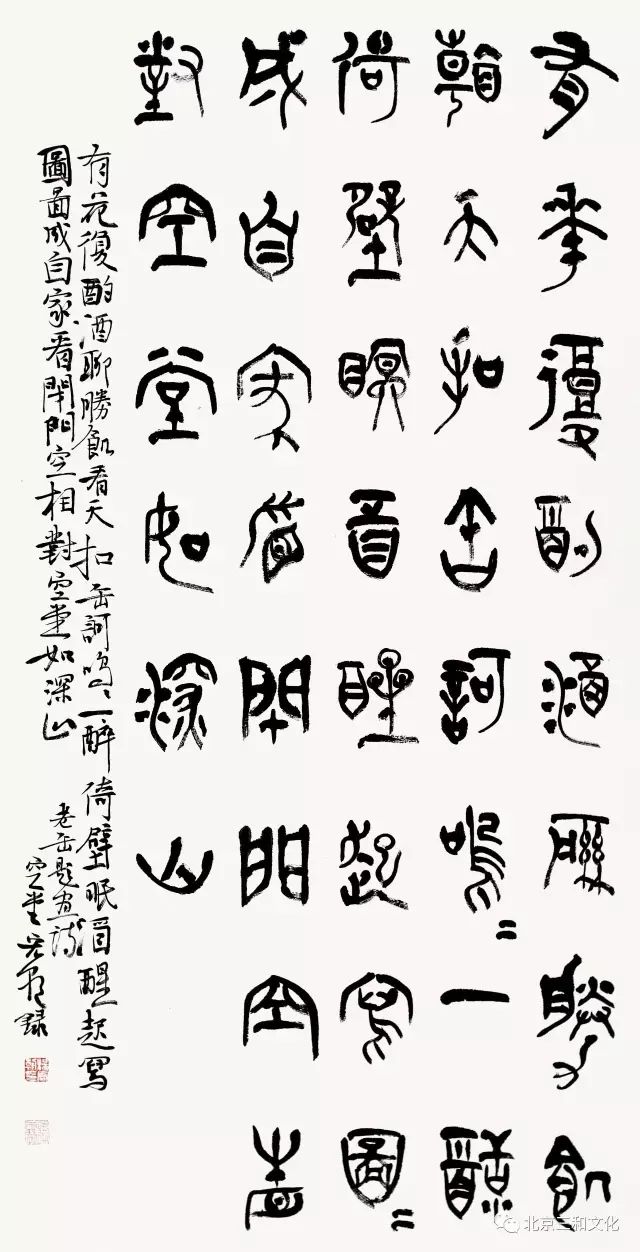 有華復酌酒聊勝飢
天扣缶訶嗚〻一醉
倚壁眠醒起寫圖〻
成自家看閉門空
對空堂如深山
有花復酌酒聊勝飢看天扣缶訶嗚〻一醉倚壁眠醒起寫
圖畫成自家看閉門空相對空堂如深山
老缶題畫詩
空堂錄
北京三和文化